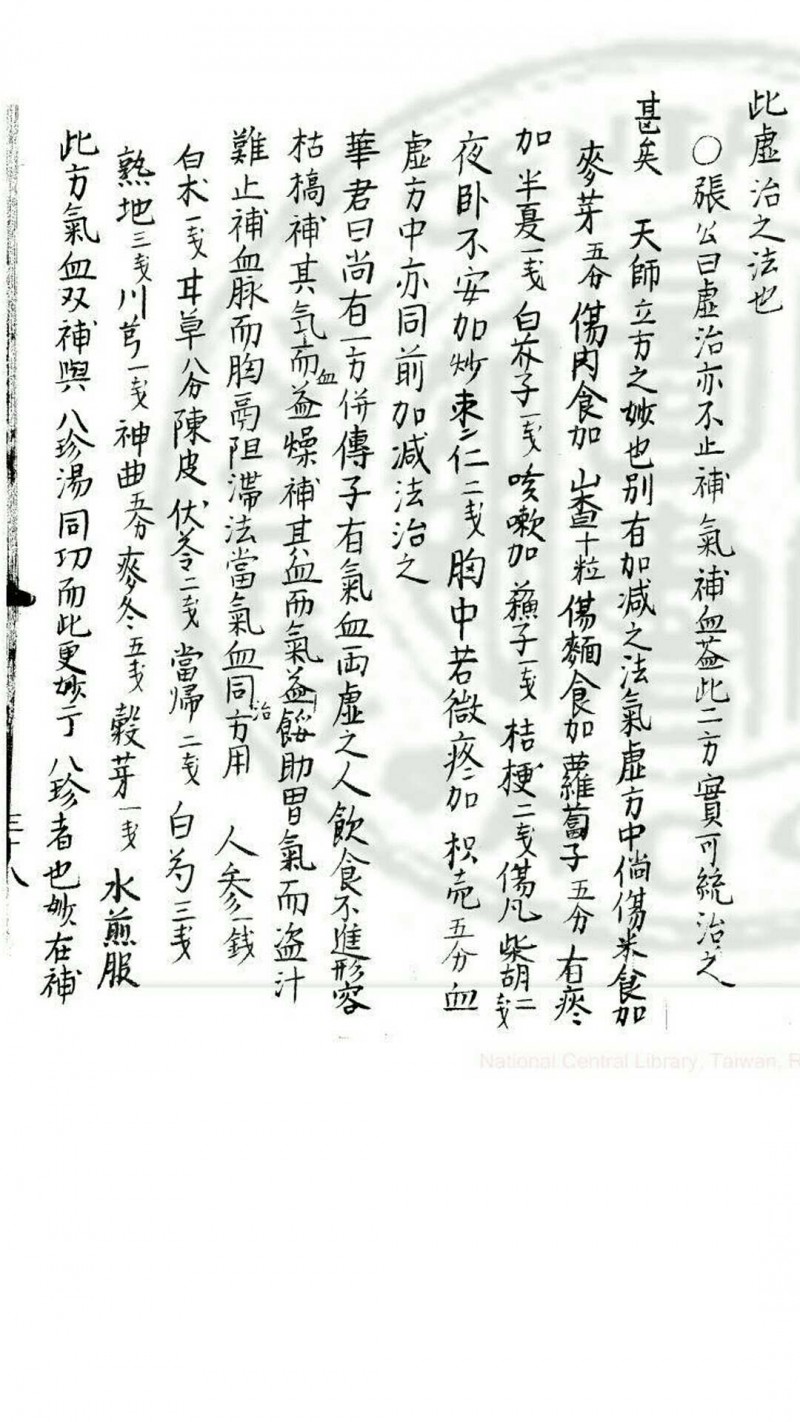 此虛治之法也
○張公曰虛治亦不止補氣補血葢此二方實可統治之
甚矣 天師立方之妙也別有加減之法氣虛方中倘傷米食加
麥芽五分傷肉食加山查十粒傷麵食加蘿蔔子五分有痰
加半夏一戋白芥子一戋咳嗽加蘓子一戋桔梗二戋傷風柴胡二戋
夜卧不安加炒枣仁二戋胸中若微疼加枳壳五分血
虛方中亦同前加减法治之
華君曰尚有一方併傳子有氣血両虛之人飲食不進形容
枯槁補其気而血益燥補其血而氣益餒助胃氣而盜汁
難止補血脉而胸鬲阻滯法當氣血同治方用 人参一錢
白术一戋甘草八分陳皮 伏苓二戋當帰二戋白芍三戋
熟地三戋川芎一戋神曲五分麥冬五戋穀芽一戋水煎服
此方氣血双補與八珍湯同功而此更妙于八珍者也妙在補
三十八
National Central Library, Taiwan, R